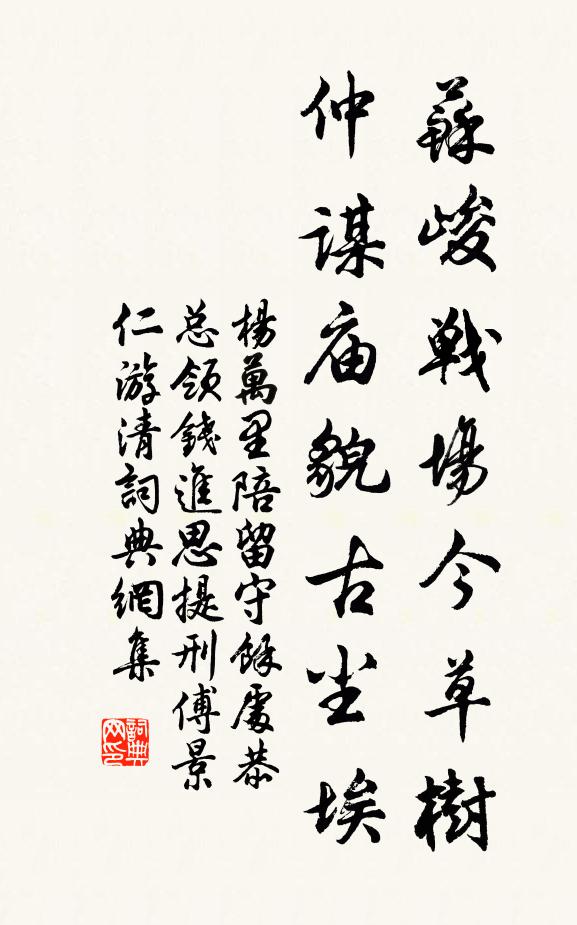 蘇峻戰場今草樹
仲謀庙貌古尘埃
楊萬里陪留守餘處恭
总領錢進思提刑傅景
仁游清詞典網集
詞典网印